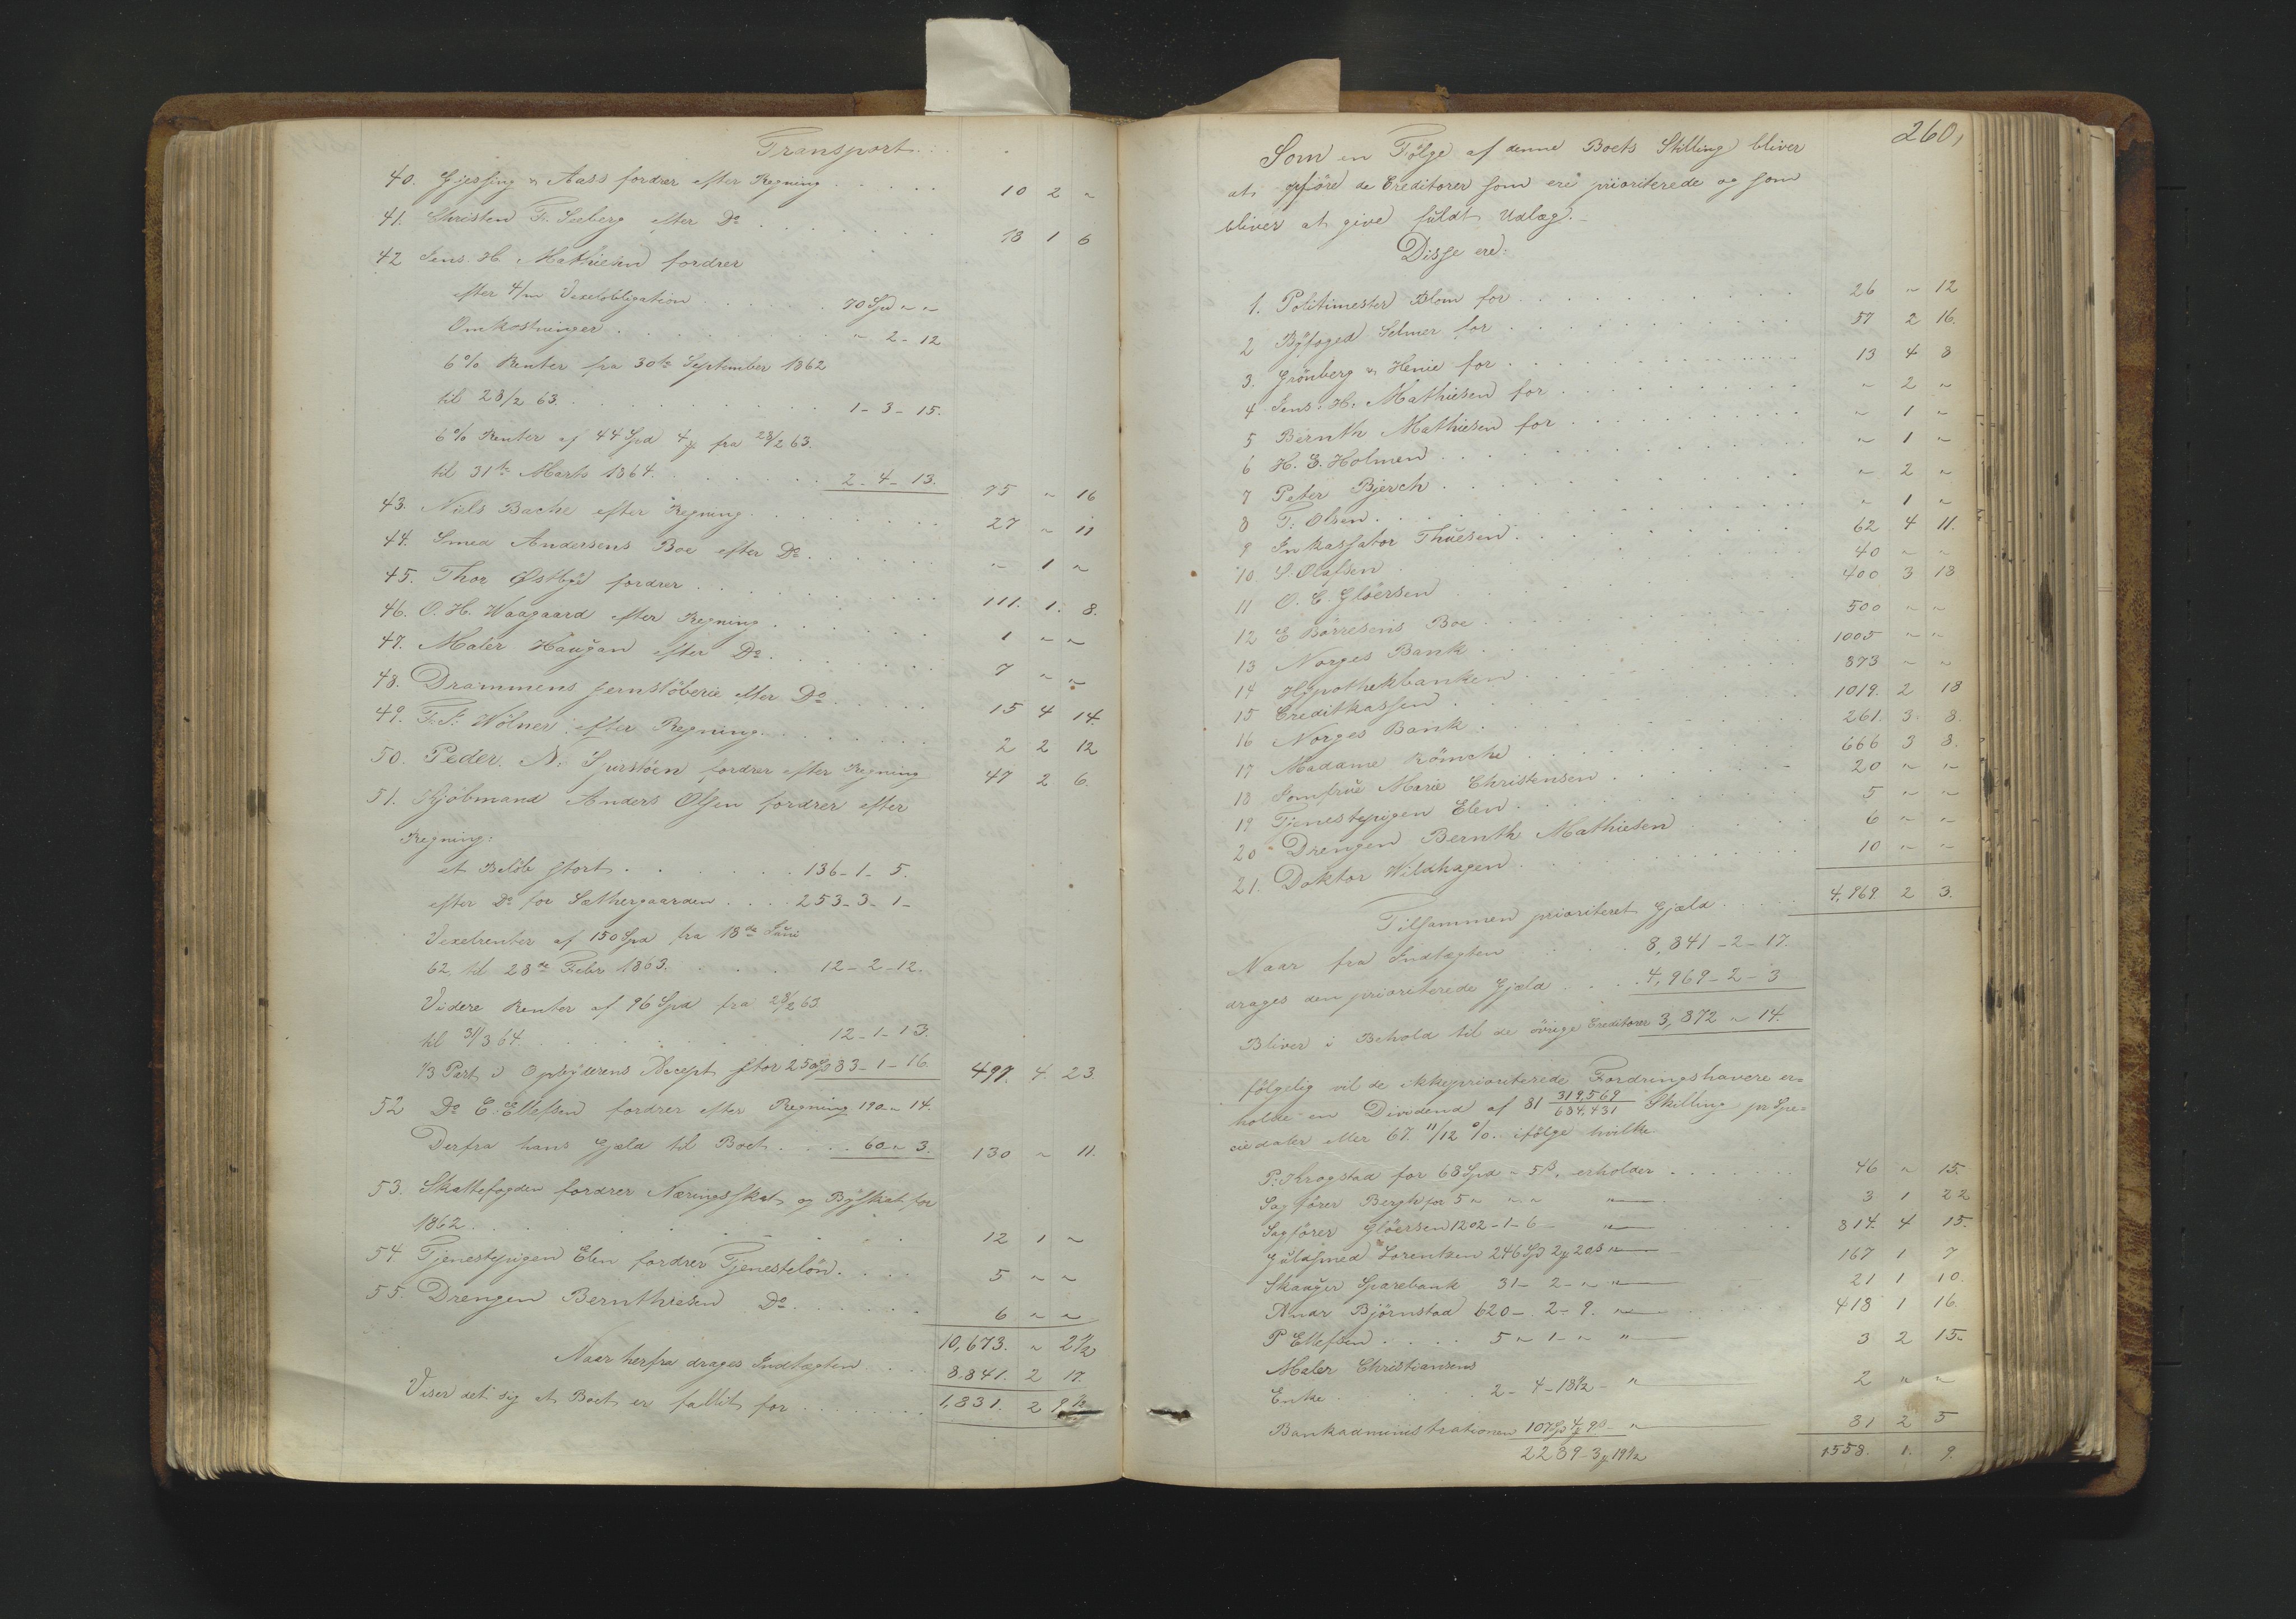 Transport..
40. Gjessing & Aass fordrer efter Regning . . . . . 10 2 "
41. Christen Fr. Seeberg efter Do . . . . . . . 18 1 6
42 Jens H. Mathiesen fordrer
efter 4/m Vexelobligation . . . . . 70 Spd " "
Omkostninger . . . . . . " 2 - 12
6% Renter fra 30te September 1862
til 28/2 63. . . . . . . . 1 - 3 - 15.
6% Renter af 44 Spd 4 fra 28/2 63.
til 31te Marts 1864. . . . . . . 2 - 4 - 13. 75 " 16
43. Niels Bache efter Regning . . . . . . . 27 " 11
44. Smed Andersens Boe efter Do . . . . . " 1 "
45. Thor Østbye fordrer . . . . . . . . 111. 1. 8.
46. O. H. Waagaard efter Regning . . . . . . 1 " "
47. Maler Haugan efter Do . . . . . . 7 " "
48. Drammens Jernstöberie efter Do . . . . 15 4 14.
49. efter Regning . . . . . . . 2 2 12
50. Peder. N. fordrer efter Regning 47 2 6.
51. Kjöbmand Anders Olsen fordrer efter
Regning:
et Belöb stort . . . . . . . 136 - 1 - 5.
efter Do for Sæthergaarden . . . . 253 - 3 - 1 -
Vexelrenter af 150 Spd fra 18de Juni
62, til 28de Febr 1863. . . . . 12 - 2 - 12.
Videre Renter af 96 Spd fra 28/2 63
til 31/3 64. . . . . . . . 12 - 1 - 13.
1/3 Part i Opbyderens Accept stor 250 Spd 83 - 1 - 16. 497. 4. 23.
52 Do C. Ellefsen fordrer efter Regning 190 " 14.
Derfra hans Gjæld til Boet . . . . 60 " 3. 130 " 11.
53. Skattefogden fordrer Næringsskat og Byskat for
1862 . . . . . . . . . 12 1 "
54 Tjenestepigen Elen fordrer Tjenestelön . . . . 5 " "
55. Drengen Bernthiesen Do . . . . . . 6 " "
10,673. " 2 1/2
Naar herfra drages Indtægten . . . 8.841. 2 17.
Viser det sig at Boet er fallit for . . . . . . . 1,831. 2 9 1/2
260,
Som en Fölge af denne Boets Stilling bliver
at opföre de Creditorer som ere prioriterede og som
bliver at give fuldt Udlæg. -
Disse ere:
1. Politimester Blom for . . . . . . . 26 " 12
2 Byfoged Selmer for . . . . . . . 57 2 16.
3. Grönberg & Henie for . . . . . . . 13 4 8
4 Jens. H. Mathiesen for . . . . . . . " 2 "
5 Bernth Mathiesen for . . . . . . . " 1 "
6 H. S. Holmen . . . . . . . . " 1 "
7 Peter Bjerch . . . . . . . . " 2 "
8 T. Olsen . . . . . . . . . " 1 "
9 Inkassator Thuesen . . . . . . . 62 4 11.
10 S. Olafsen . . . . . . . 40 " "
11 O. C. Glöersen . . . . . . . 400 3 13
12 E Börresens Boe . . . . . . . 500 " "
13 Norges Bank . . . . . . . 1005 " "
14 Hypothekbanken . . . . . . . 873 " "
15 Creditkassen . . . . . . . 1019. 2 18
16 Norges Bank . . . . . . . 261. 3. 8.
17 Madame Römcke . . . . . . . 666 3 8.
18 Jomfrue Marie Christensen . . . . . . 20 " "
19 Tienestepigen Elen . . . . . . . 5 " "
20 Drengen Bernth Mathiesen . . . . 6 " "
21. Doktor Wildhagen . . . . . . . 10 " "
Tilsammen prioriteret Gjæld . . . . . 4,969. 2 3.
Naar fra Indtægten . . . . 8,841 - 2 - 17.
drages den prioriterede Gjæld . . . . 4,969 - 2 - 3
Bliver i Behold til de övrige Creditorer 3,872 " 14.
fölgelig vil de ikkeprioriterede Fordringshavere er=
holde en Dividend af 81 319,569/684,431 Skilling pr Spe=
ciedaler eller 67. 11/12 %. ifölge hvilke
P. Krogstad for 68 Spd " 5 ß. erholder . . . . . . 46 " 15.
Sagförer Bergh for 5 " " " " 3 1 22
Sagförer Glöersen 1202 - 1 - 6 - " 814. 4 15.
Guldsmed Lorentzen 246 Spd 2 20 ß " 167 1 7
Skauger Sparebank 31 - 2 - " " 21 1 10.
Anar Björnstad 620 - 2 - 9. " 418 1 16.
P Ellefsen . . . . 5 " 1 - " " 3 2 15.
Maler Christiansens
Enke . . . . . 2 - 4 - 18 1/2 - " 2 " "
Bankadministrationen 107 Spd 4 9 ß - " 81 2 5
2289 - 3 19 1/2 1558. 1. 9.